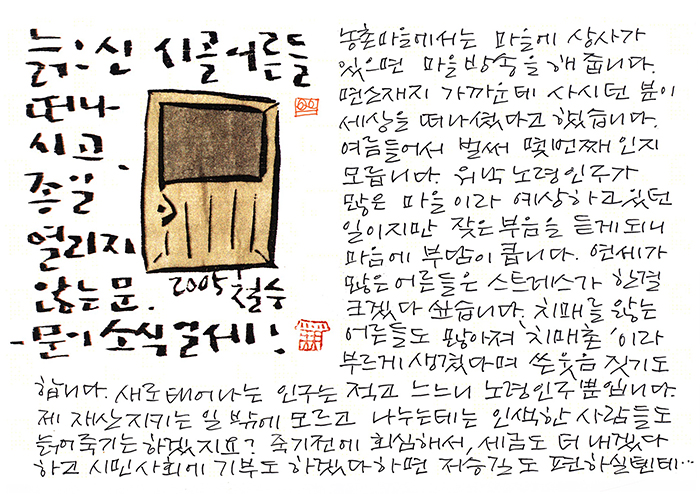 늙으신 시골어른들
떠나
시고.
종일
열리지
않는 문.
-문이 소식일세!
2005 철수
농촌마을에서는 마을에 상사가
있으면 마을방송을 해 줍니다.
면소재지 가까운데 사시던 분이
세상을 떠나셨다고 했습니다.
여름들어서 벌써 몇번째인지
모릅니다. 워낙 노령인구가
많은 마을이라 예상하고있던
일이지만 잦은부음을 듣게되니
마음에 부담이 큽니다. 연세가
많은어른들은 스트레스가 한결
크겠다 싶습니다. 치매를 앓는
어른들도 많아져 '치매촌'이라
부르게 생겼다며 쓴웃음 짓기도
합니다. 새로태어나는 인구는 적고 느느니 노령인구뿐입니다.
제 재산지키는 일밖에 모르고 나누는데는 인색한 사람들도
늙어죽기는하겠지요? 죽기전에 회심해서, 세금도 더 내겠다
하고 시민사회에 기부도 하겠다하면 저승길도 편하실텐데…